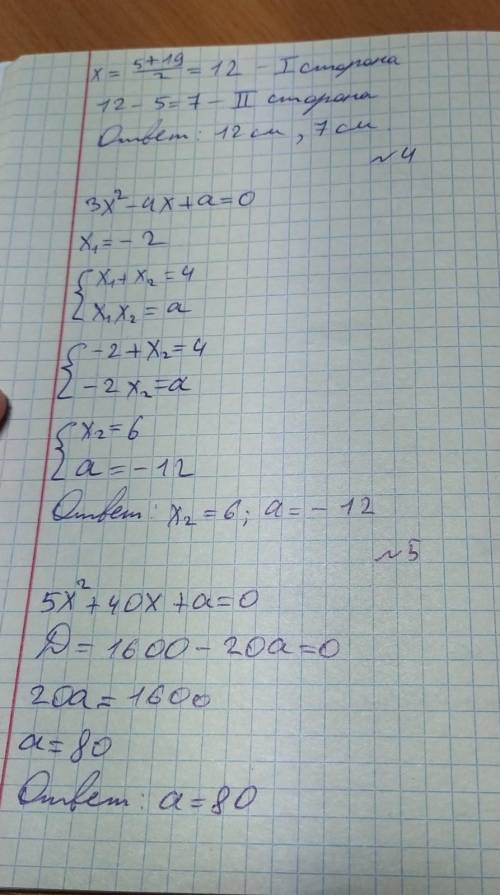 x = (5+19)/2 = 12 - I сторона
12 - 5 = 7 - II сторона
Ответ: 12 см, 7 см
№4
3x² - 4x + a = 0
x₁ = - 2
{ x₁ + x₂ = 4
x₁x₂ = a
{ -2 + x₂ = 4
-2x₂ = a
{ x₂ = 6
a = - 12
Ответ: x₂ = 6; a = - 12
№5
5x² + 40x + a = 0
D = 1600 - 20a = 0
20a = 1600
a = 80
Ответ: a = 80